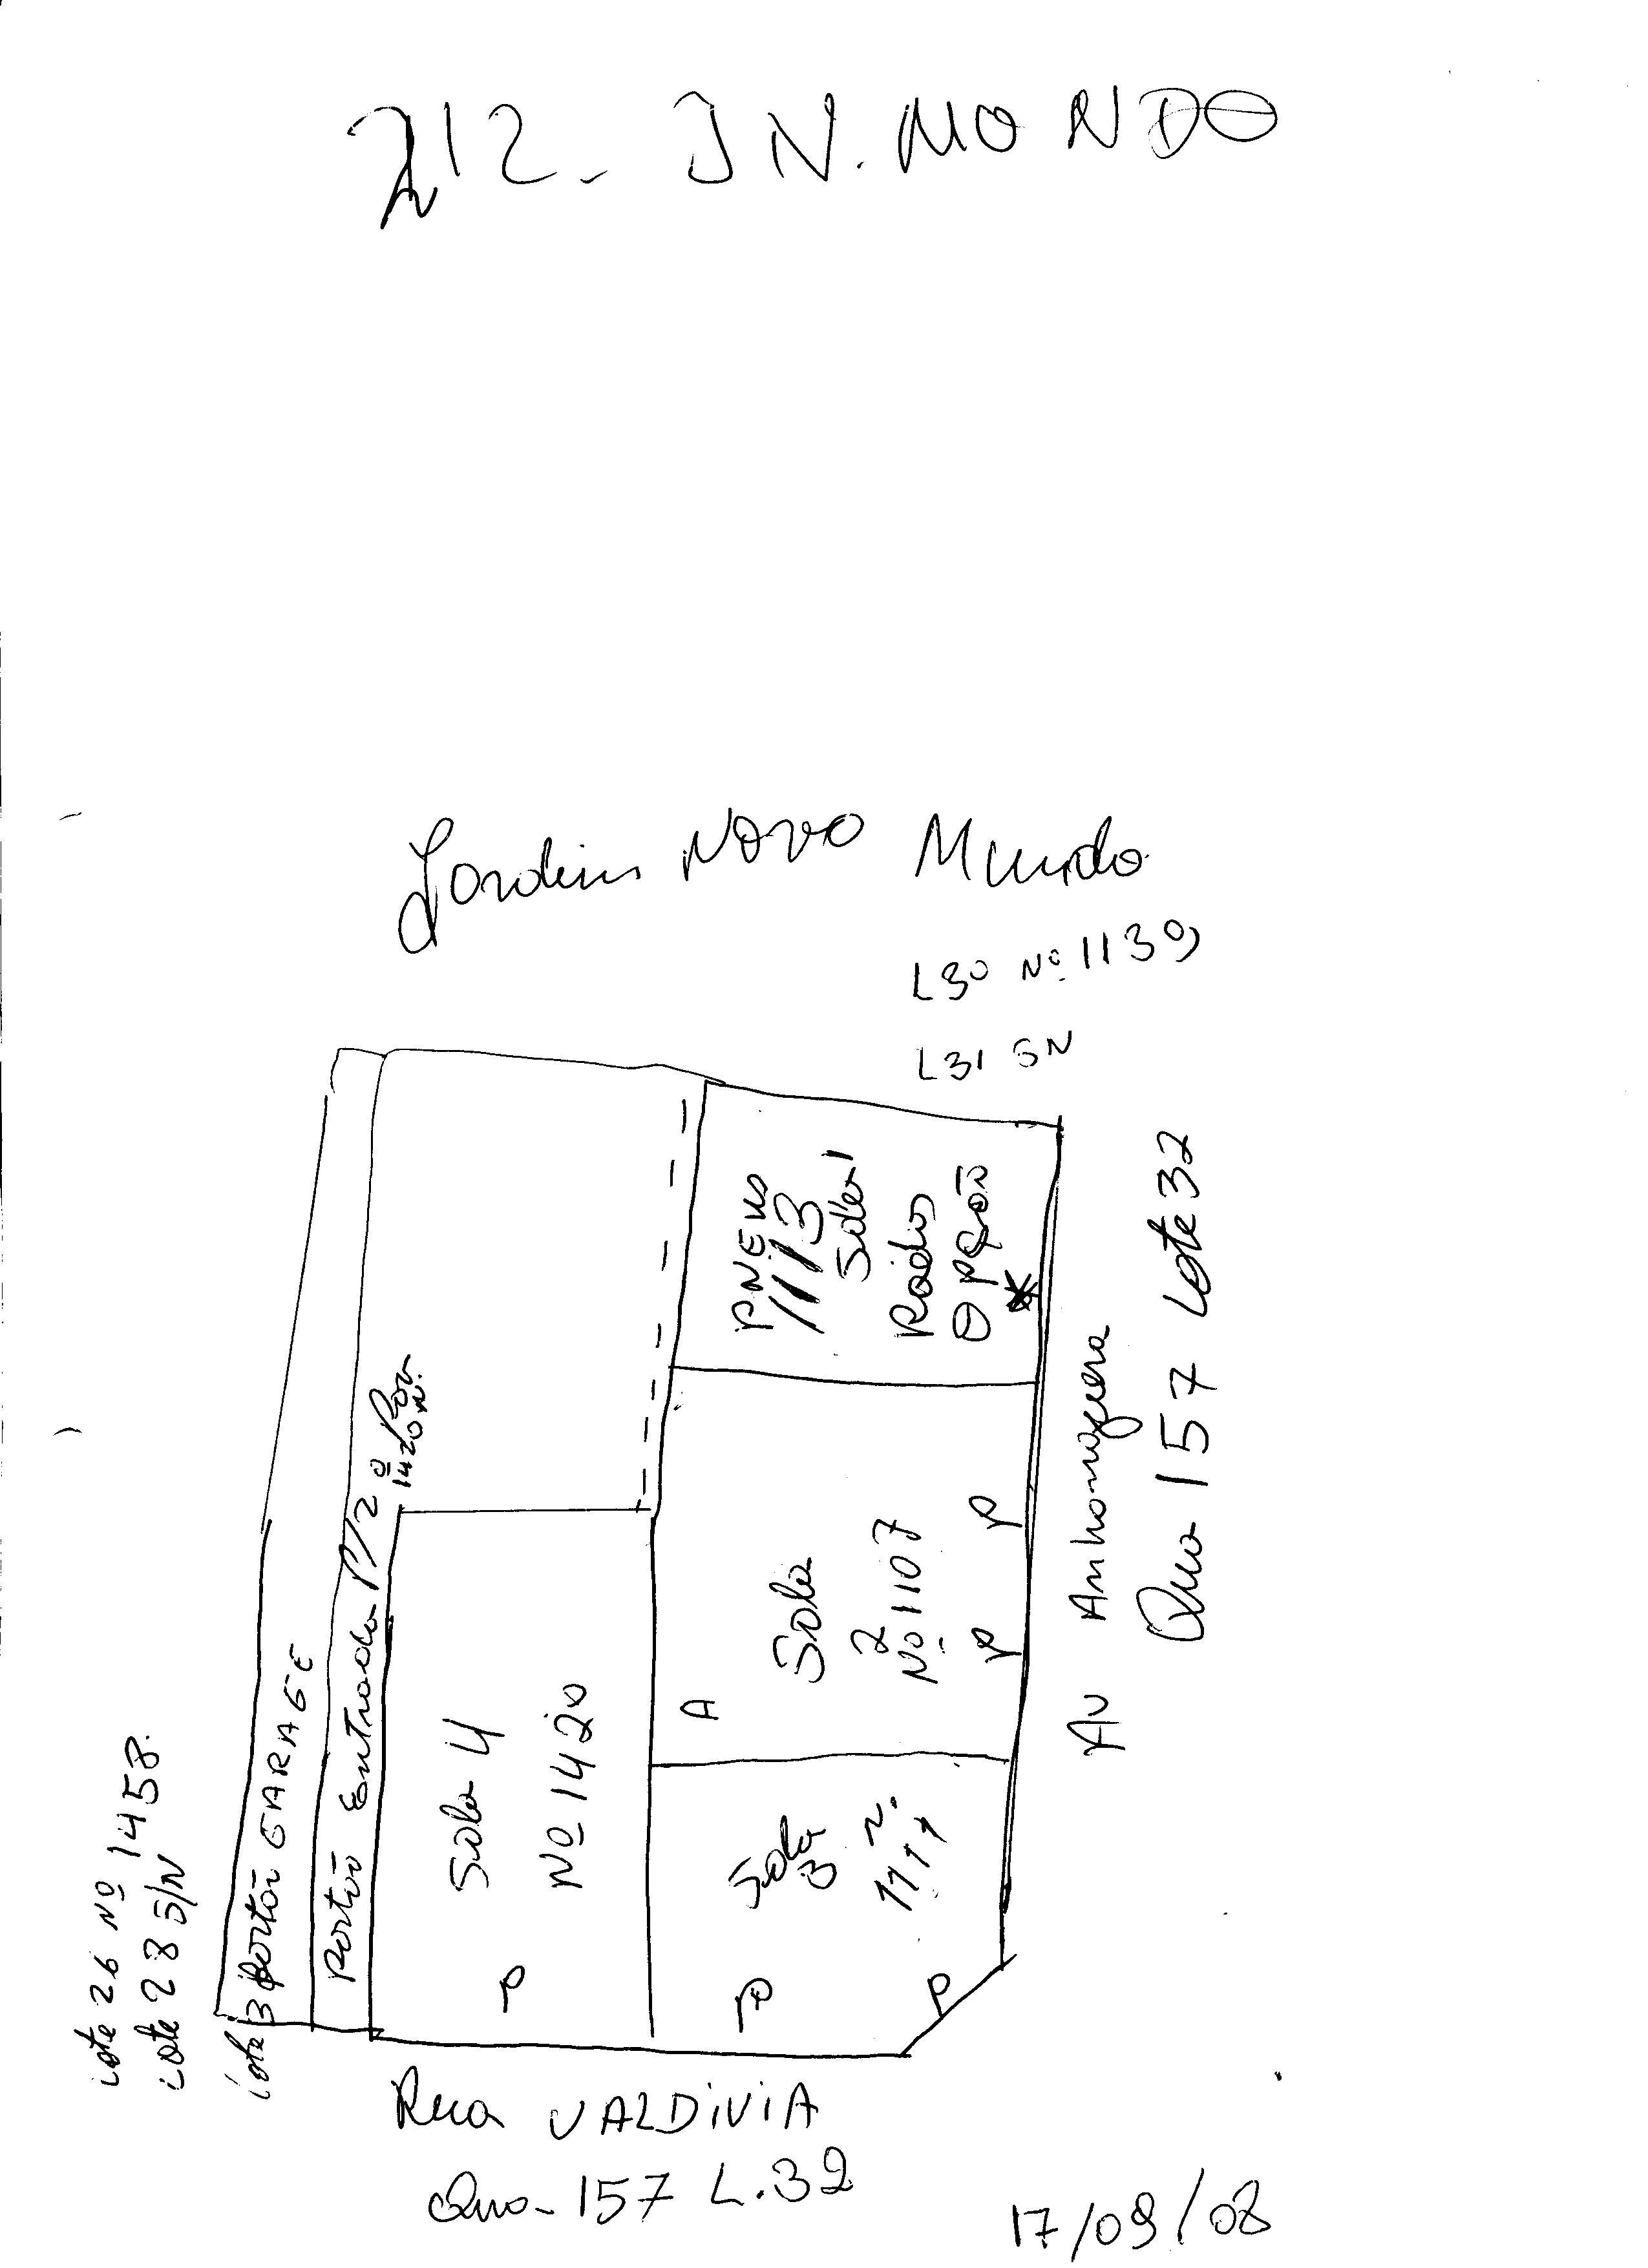 212. JN. MONDO
Jardim Novo Mundo
L30 Nº 1139
L31 SN
PNEUS
1113
Rádios
Opção
Sala
2
Nº 1107
P P
A
Sala
3
P
P
Sala 4
Nº 1420
P
Portão Entrada P/2º
1420
Portão GARAGE
Lote 26 Nº 1458.
Lote 28 S/N
Av Anhanguera
Qua 157 Lote 32
Rua VALDIVIA
Qua - 157 L.32
17/09/08